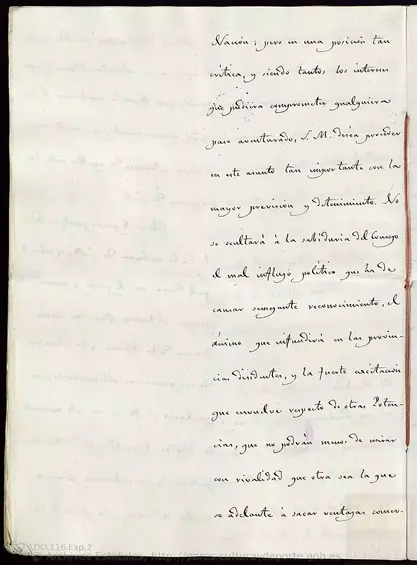 Nacion; pero en una posicion tan
critica, y siendo tantos los interes
que pudiera comprometer qualquiera
paso aventurado, S.M. desea proceder
en este asunto tan importante con la
mayor prevision y detenimiento. No
se ocultará á la sabiduria del Consejo
el mal influjo politico que ha de
causar semejante reconocimiento, el
ánimo que infundirá en las provin-
cias disidentes, y la fuerte excitacion
que envuelve respecto de otras Poten-
cias, que no podrán menos de mirar
con rivalidad que otra sea la que
se adelante á sacar ventajas comer-
ADO,116,Exp.2